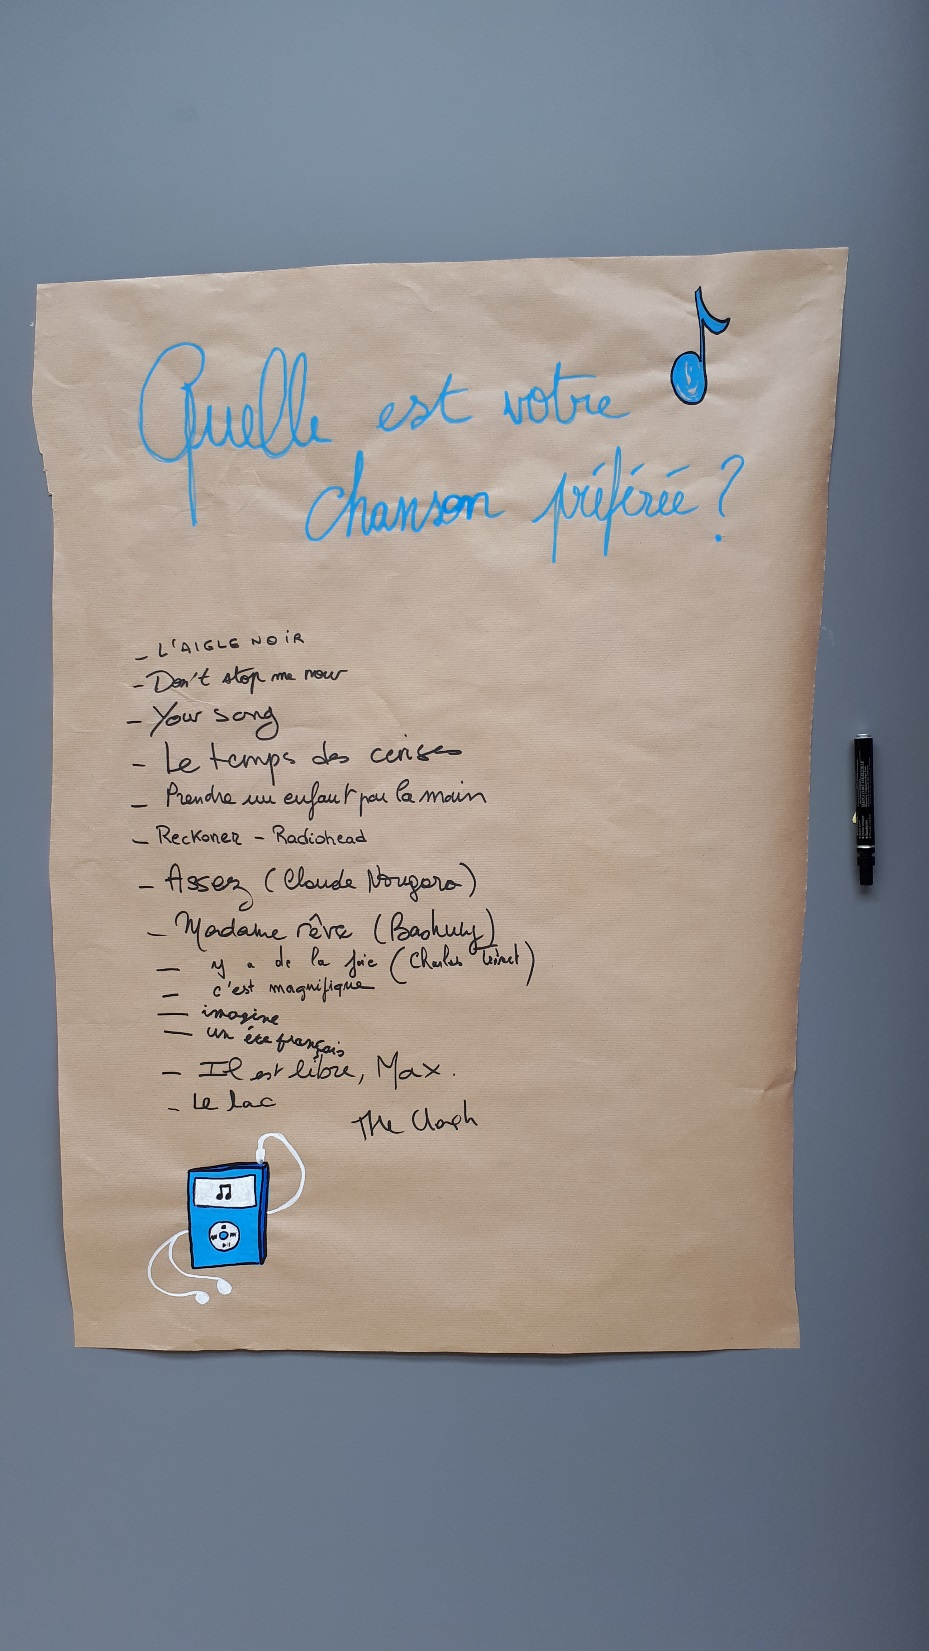 Quelle est votre
chanson préférée ?
- L'AIGLE NOIR
- Don't stop me now
- Your song
- Le temps des cerises
- Prendre un enfant par la main
- Reckoner - Radiohead
- Assez (Claude Nougaro)
- Madame rêve (Bashung)
- y a de la joie (Charles Trénet)
- c'est magnifique
- imagine
- un été français
- Il est libre, Max.
- Le lac
The Clash